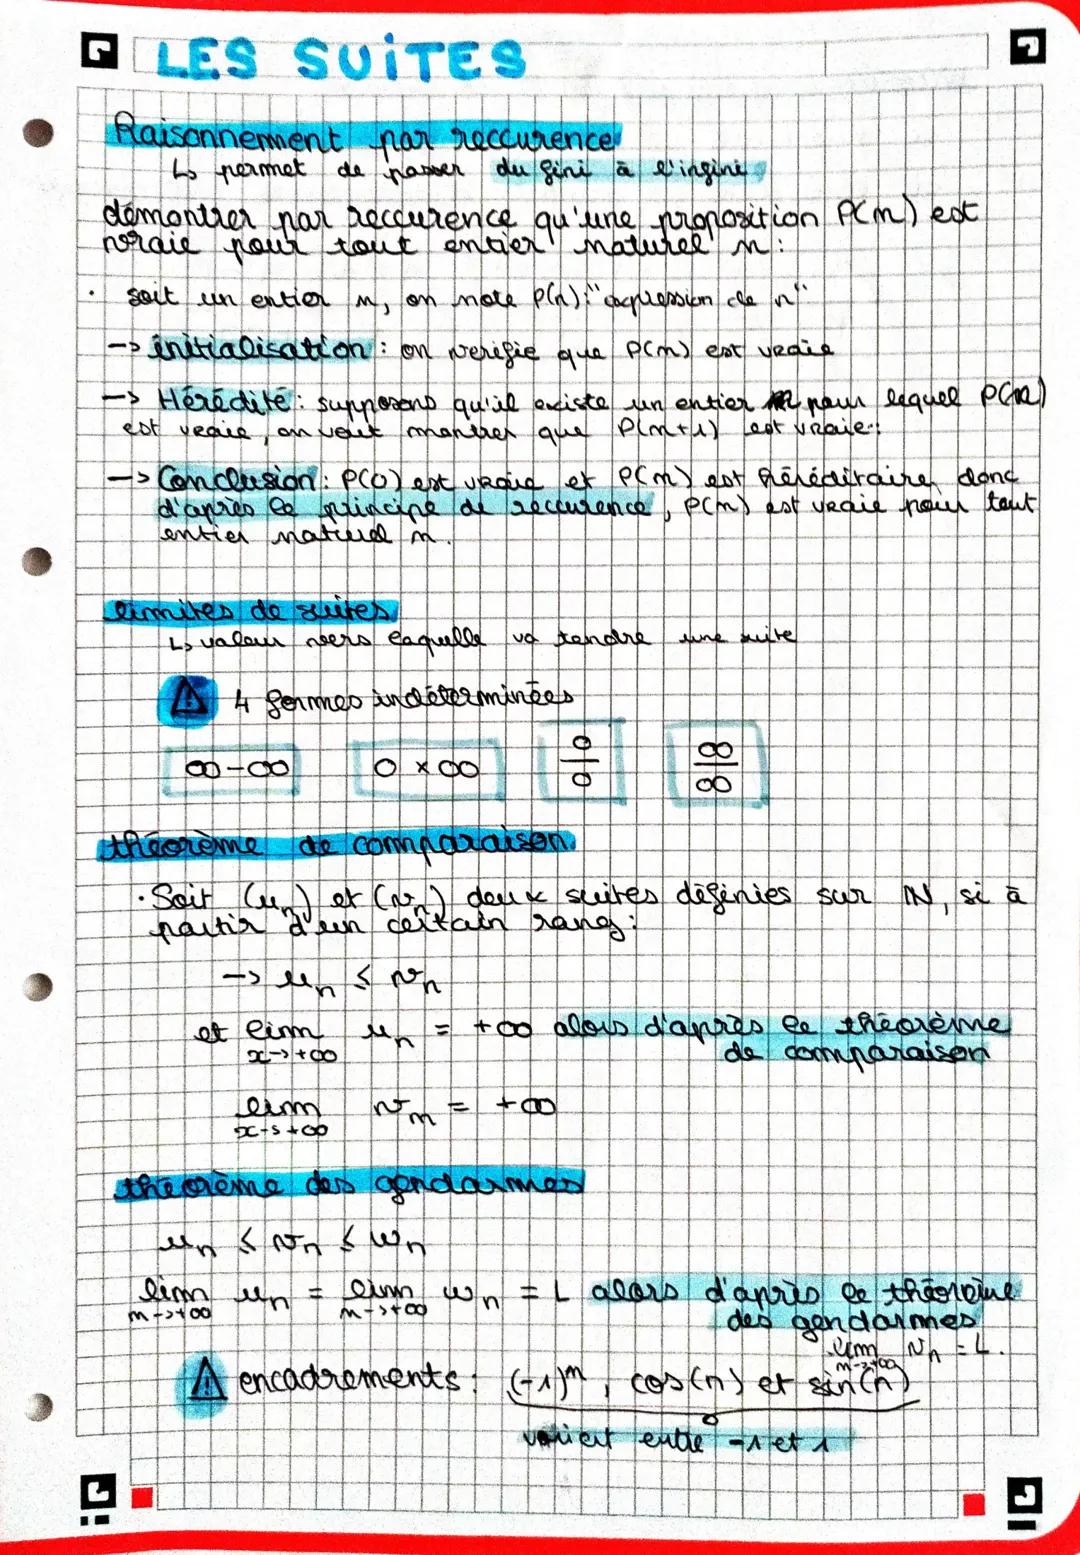 LES SUITES
Raisonnement par reccurence
↳ permet de passer du fini à l'infini
démontrer par reccurence qu'une proposition P(n) est
vraie pour tout entier naturel n :
· soit un entier n, on note P(n): "expression de n"
-> initialisation : on verifie que P(n) est vraie
-> Hérédité : supposons qu'il existe un entier n pour lequel P(n)
est vraie, on veut montrer que P(n+1) est vraie.
-> Conclusion : P(0) est vraie et P(n) est héréditaire donc
d'après le principe de reccurence, P(n) est vraie pour tout
entier naturel n.
limites de suites
↳ valeur vers laquelle va tendre une suite
⚠ 4 formes indéterminées
∞-∞ 0 × ∞ 0/0 ∞/∞
théorème de comparaison
· Soit (u_n) et (v_n) deux suites définies sur ℕ, si à
partir d'un certain rang :
-> u_n ≤ v_n
et lim u_n = +∞ alors d'après le théorème
x->+∞ de comparaison
lim v_n = +∞
x->+∞
théorème des gendarmes
u_n ≤ v_n ≤ w_n
lim u_n = lim w_n = L alors d'après le théorème
n->+∞ n->+∞ des gendarmes
lim v_n = L.
n->+∞
⚠ encadrements : (-1)^n, cos(n) et sin(n)
varient entre -1 et 1